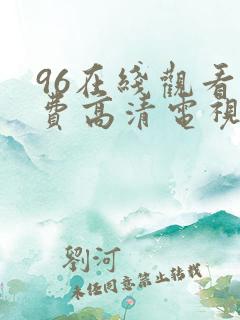 96在綫觀看
費高清電視
劉河
未经同意禁止转载